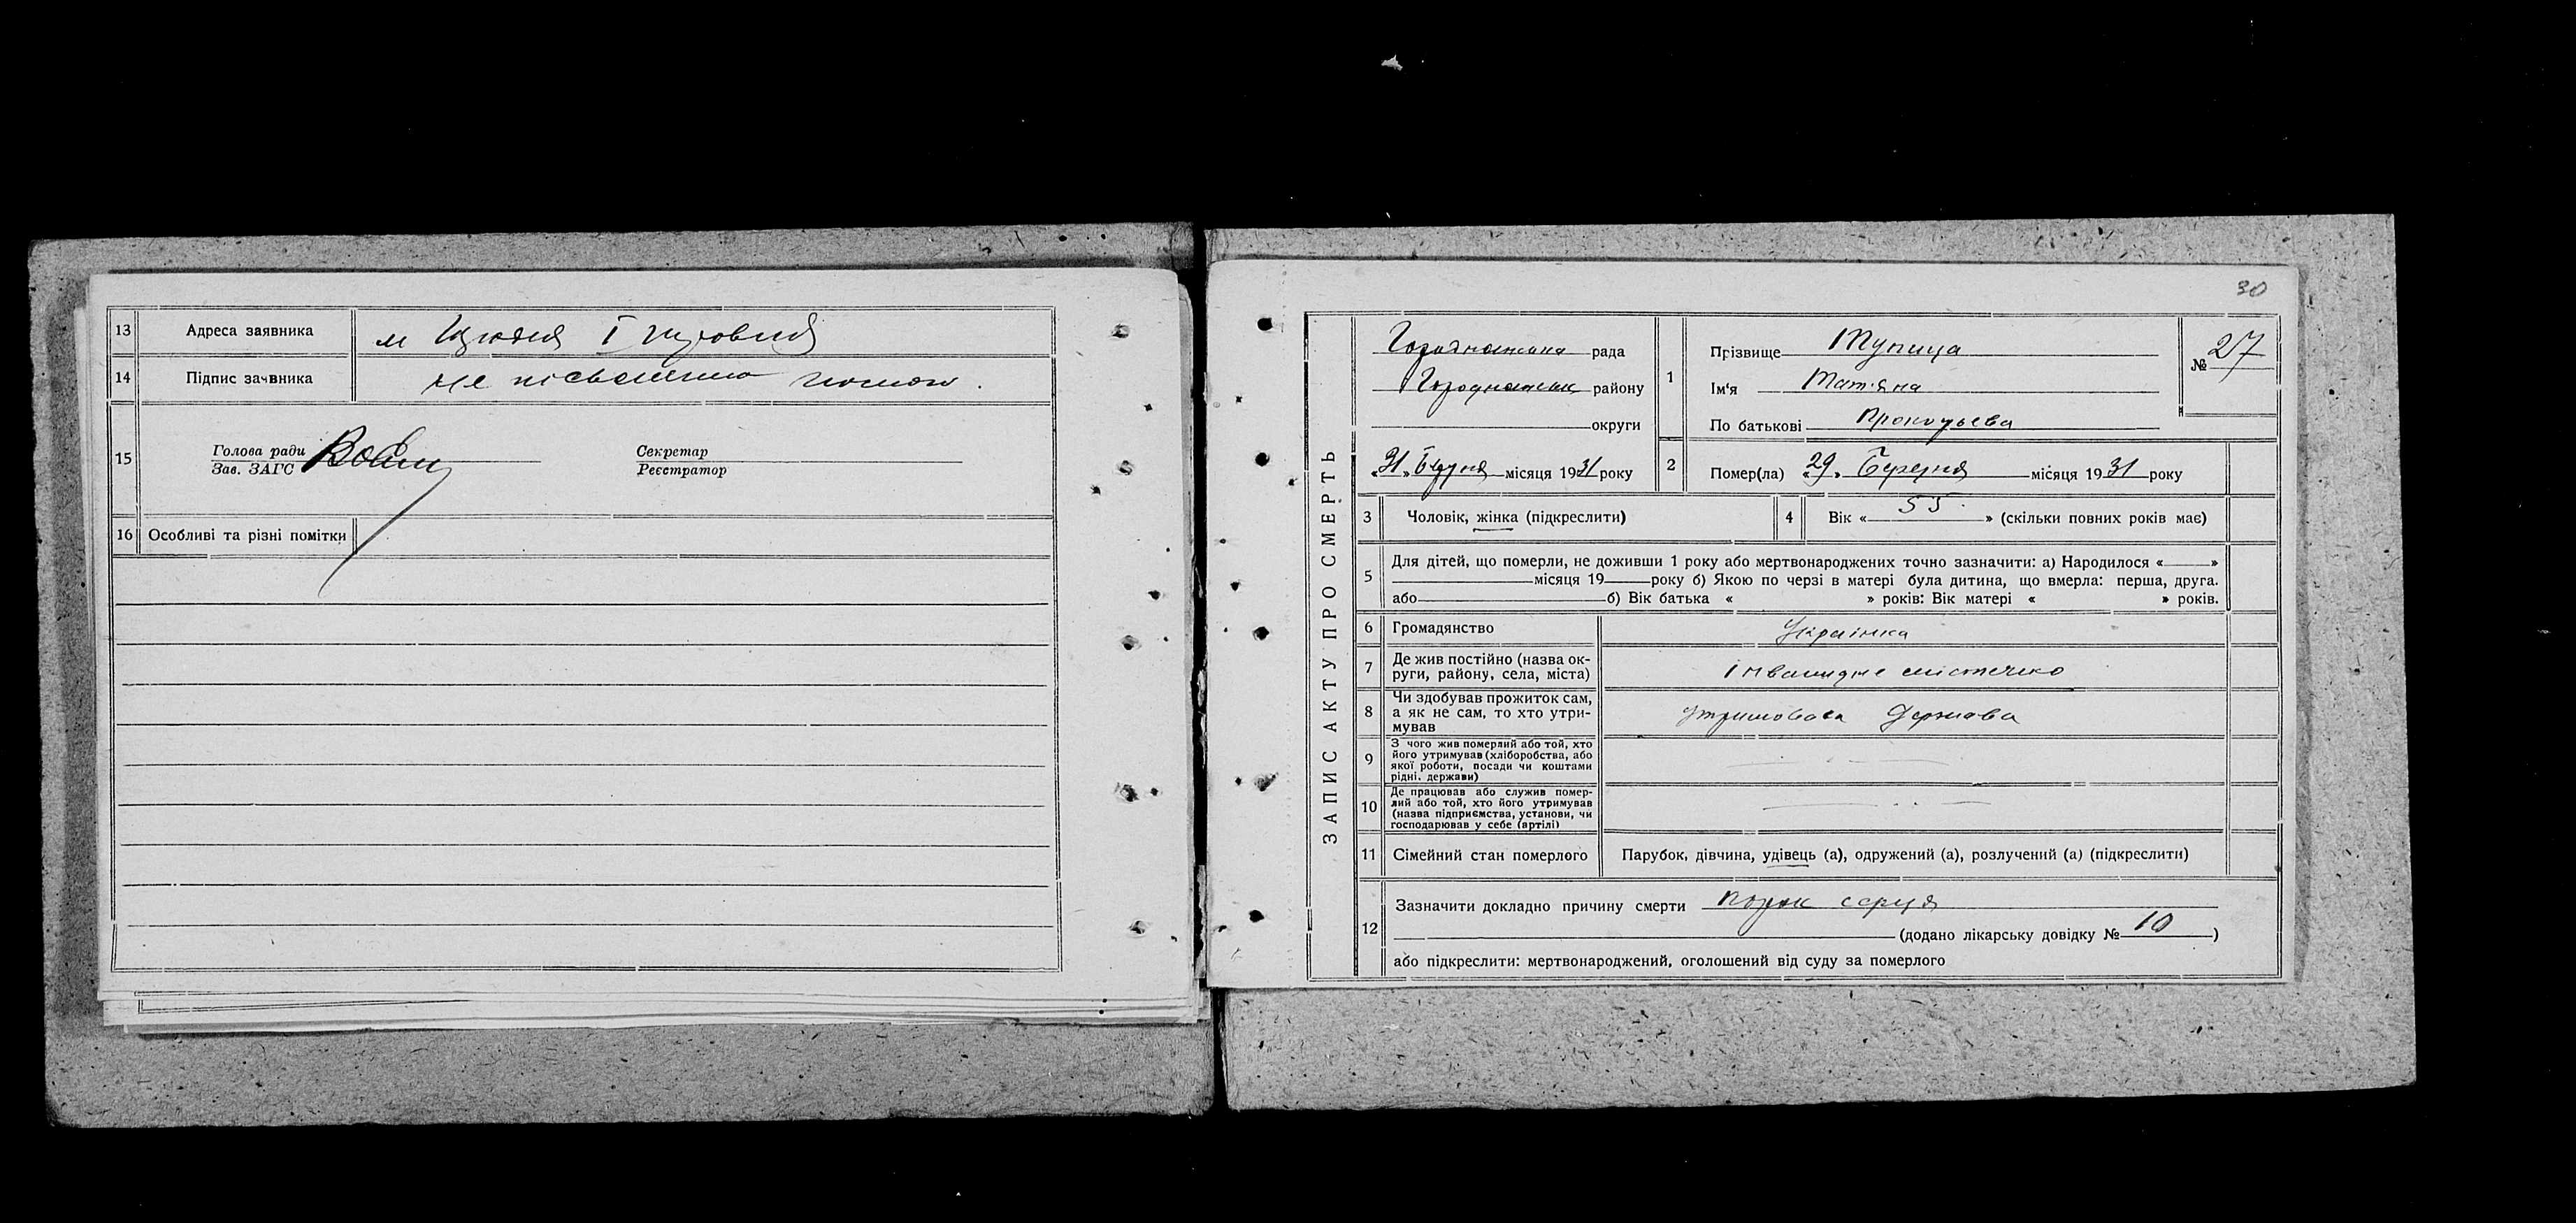 13 Адреса заявника м
14 Підпис заявника не письменна
15 Голова ради
Зав. ЗАГС
Секретар
Реєстратор
16 Особливі та різні помітки
30
ЗАПИС АКТУ ПРО СМЕРТЬ
рада
району
округи
«31» місяця 1931 року
1 Прізвище Тупица
Ім'я Татяна
По батькові Прокопьева
№ 27
2 Помер(ла) «29» Березня місяця 1931 року
3 Чоловік, жінка (підкреслити)
4 Вік « 55 » (скільки повних років має)
5 Для дітей, що померли, не доживши 1 року або мертвонароджених точно зазначити: а) Народилося « »
місяця 19 року б) Якою по черзі в матері була дитина, що вмерла: перша, друга.
або б) Вік батька « » років: Вік матері « » років.
6 Громадянство Українка
7 Де жив постійно (назва ок-
руги, району, села, міста) Інвалидне містечко
8 Чи здобував прожиток сам,
а як не сам, то хто утри-
мував утримовала Держава
9 З чого жив померлий або той, хто
його утримував (хліборобства, або
якої роботи, посади чи коштами
рідні. держави)
10 Де працював або служив помер-
лий або той, хто його утримував
(назва підприємства, установи, чи
господарював у себе (артілі)
11 Сімейний стан померлого Парубок, дівчина, удівець (а), одружений (а), розлучений (а) (підкреслити)
12 Зазначити докладно причину смерти порок серця
(додано лікарську довідку № 10 )
або підкреслити: мертвонароджений, оголошений від суду за померлого